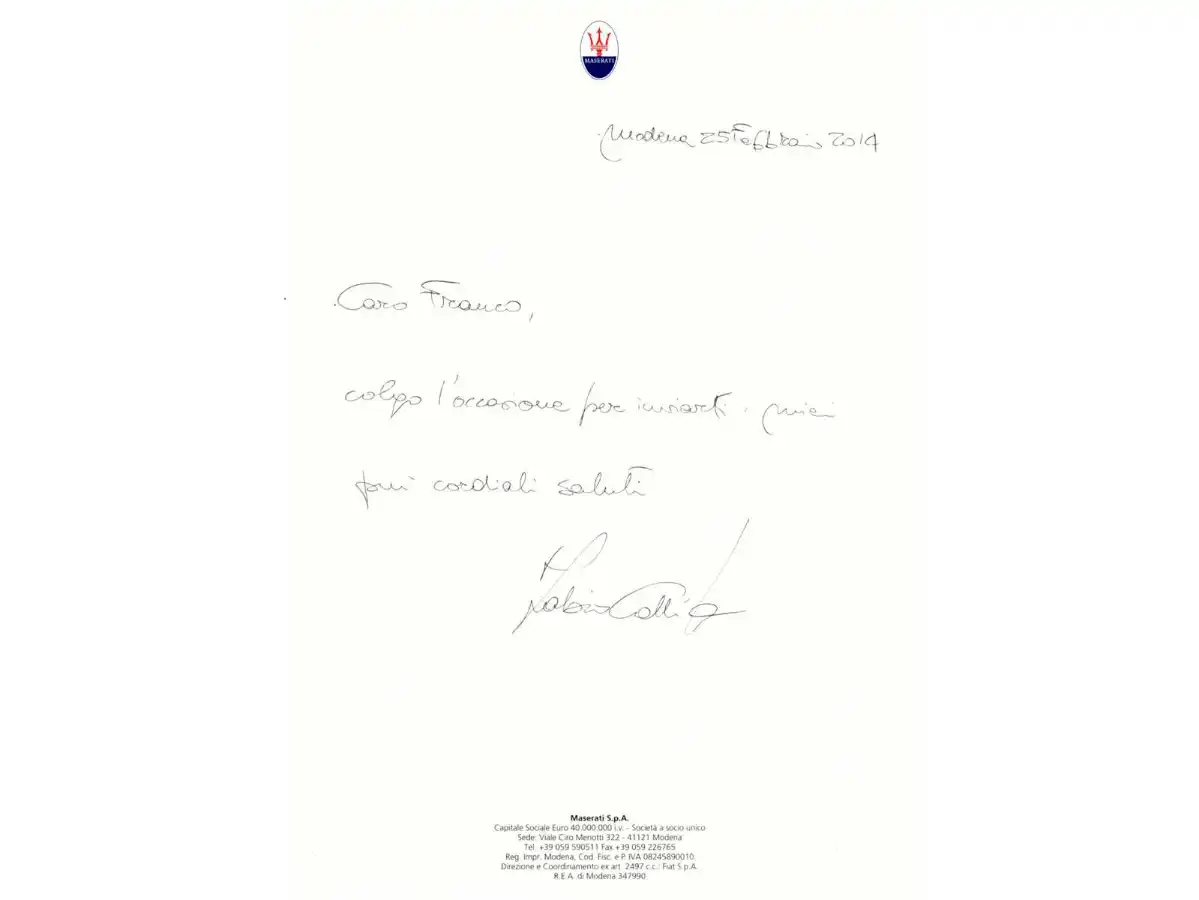 MASERATI
Modena 25 Febbraio 2014
Caro Franco,
colgo l'occasione per inviarti i miei
più cordiali saluti
Maserati S.p.A.
Capitale Sociale Euro 40.000.000 i.v. - Società a socio unico
Sede: Viale Ciro Menotti 322 - 41121 Modena
Tel. +39 059 590511 Fax +39 059 226765
Reg. Impr. Modena, Cod. Fisc. e P. IVA 08245890010
Direzione e Coordinamento ex art. 2497 c.c.: Fiat S.p.A.
R.E.A. di Modena 347990